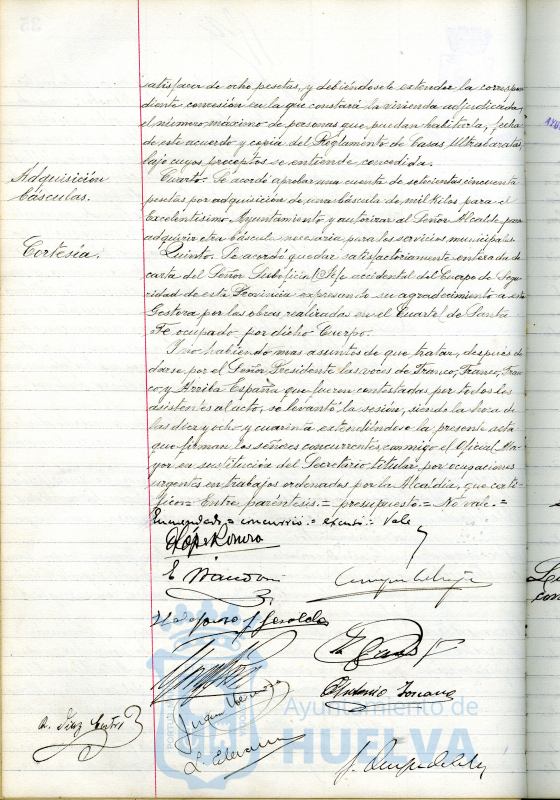 satisfacer de ocho pesetas, y debiéndosele extender la correspon
diente concesión en la que constará la vivienda adjudicada,
el número máximo de personas que puedan habitarla, fecha
de este acuerdo y copia del Reglamento de Casas Ultrabaratas,
bajo cuyos preceptos se entiende concedida.
Adquisición
básculas.
Cuarto. Se acordó aprobar una cuenta de setecientas cincuenta
pesetas por adquisición de una báscula de mil kilos para el
Excelentísimo Ayuntamiento y autorizar al Señor Alcalde para
adquirir otra báscula necesaria para los servicios municipales.
Cortesía.
Quinto. Se acordó quedar satisfactoriamente enterada de
carta del Señor Suboficial Jefe accidental del Cuerpo de Segu
ridad de esta Provincia expresando su agradecimiento a esta
Gestora por las obras realizadas en el Cuartel de Santa
Fe ocupado por dicho Cuerpo.
Y no habiendo mas asuntos de que tratar, después de
darse por el Señor Presidente las voces de Franco, Franco, Fran
co y Arriba España que fueron contestadas por todos los
asistentes al acto, se levantó la sesión, siendo la hora de
las diez y ocho y cuarenta extendiéndose la presente acta
que firman los señores concurrentes, conmigo el Oficial Ma
yor en sustitución del Secretario titular, por ocupaciones
urgentes en trabajos ordenados por la Alcaldía, que certi
fico = Entre paréntesis. = presupuesto = No vale. =
Enmendado = concursio = excuso = Vale
E
Antonio Toscano
Juan
Ayuntamiento de
HUELVA